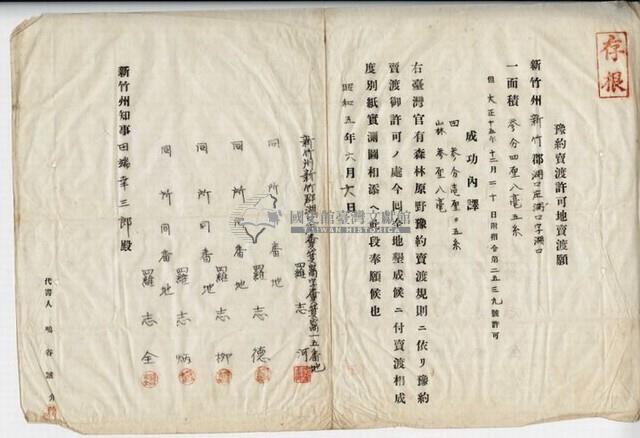 存根
豫約賣渡許可地賣渡願
新竹州新竹郡湖口庄湖口字湖口
一面積 參分四厘八毫五糸
但大正十五年十二月二十日附指令第二五三九號許可
成功內譯
田 參分壱厘〇五糸
山林 參厘八毫
右臺灣官有森林原野豫約賣渡規則ニ依リ豫約
賣渡御許可ノ處今回全地墾成候ニ付賣渡相成
度別紙實測圖相添ヘ此段奉願候也
昭和五年六月 日
新竹州新竹郡湖口庄 十五番地
羅志河
同所同番地 羅志德
同所同番地 羅志柳
同所同番地 羅志炳
同所同番地 羅志全
新竹州知事田端幸三郎殿
代書人 鳴谷
國史館臺灣文獻館
TAIWAN HISTORICA